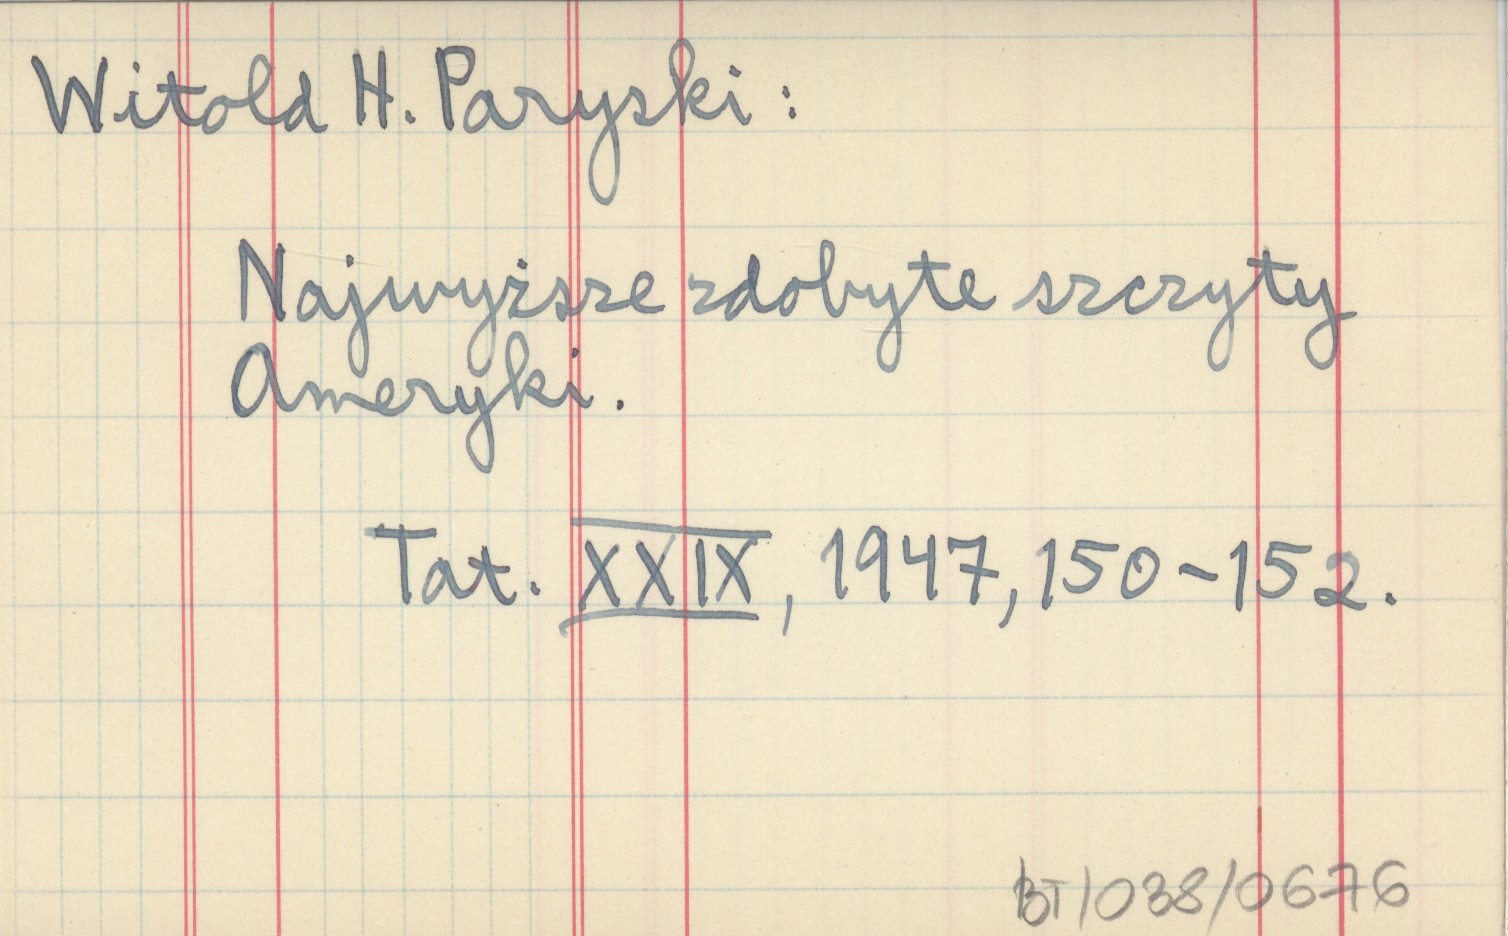 Witold H. Paryski:
Najwyższe zdobyte szczyty
Ameryki.
Tat. XXIX, 1947, 150-152.
BT/038/0676